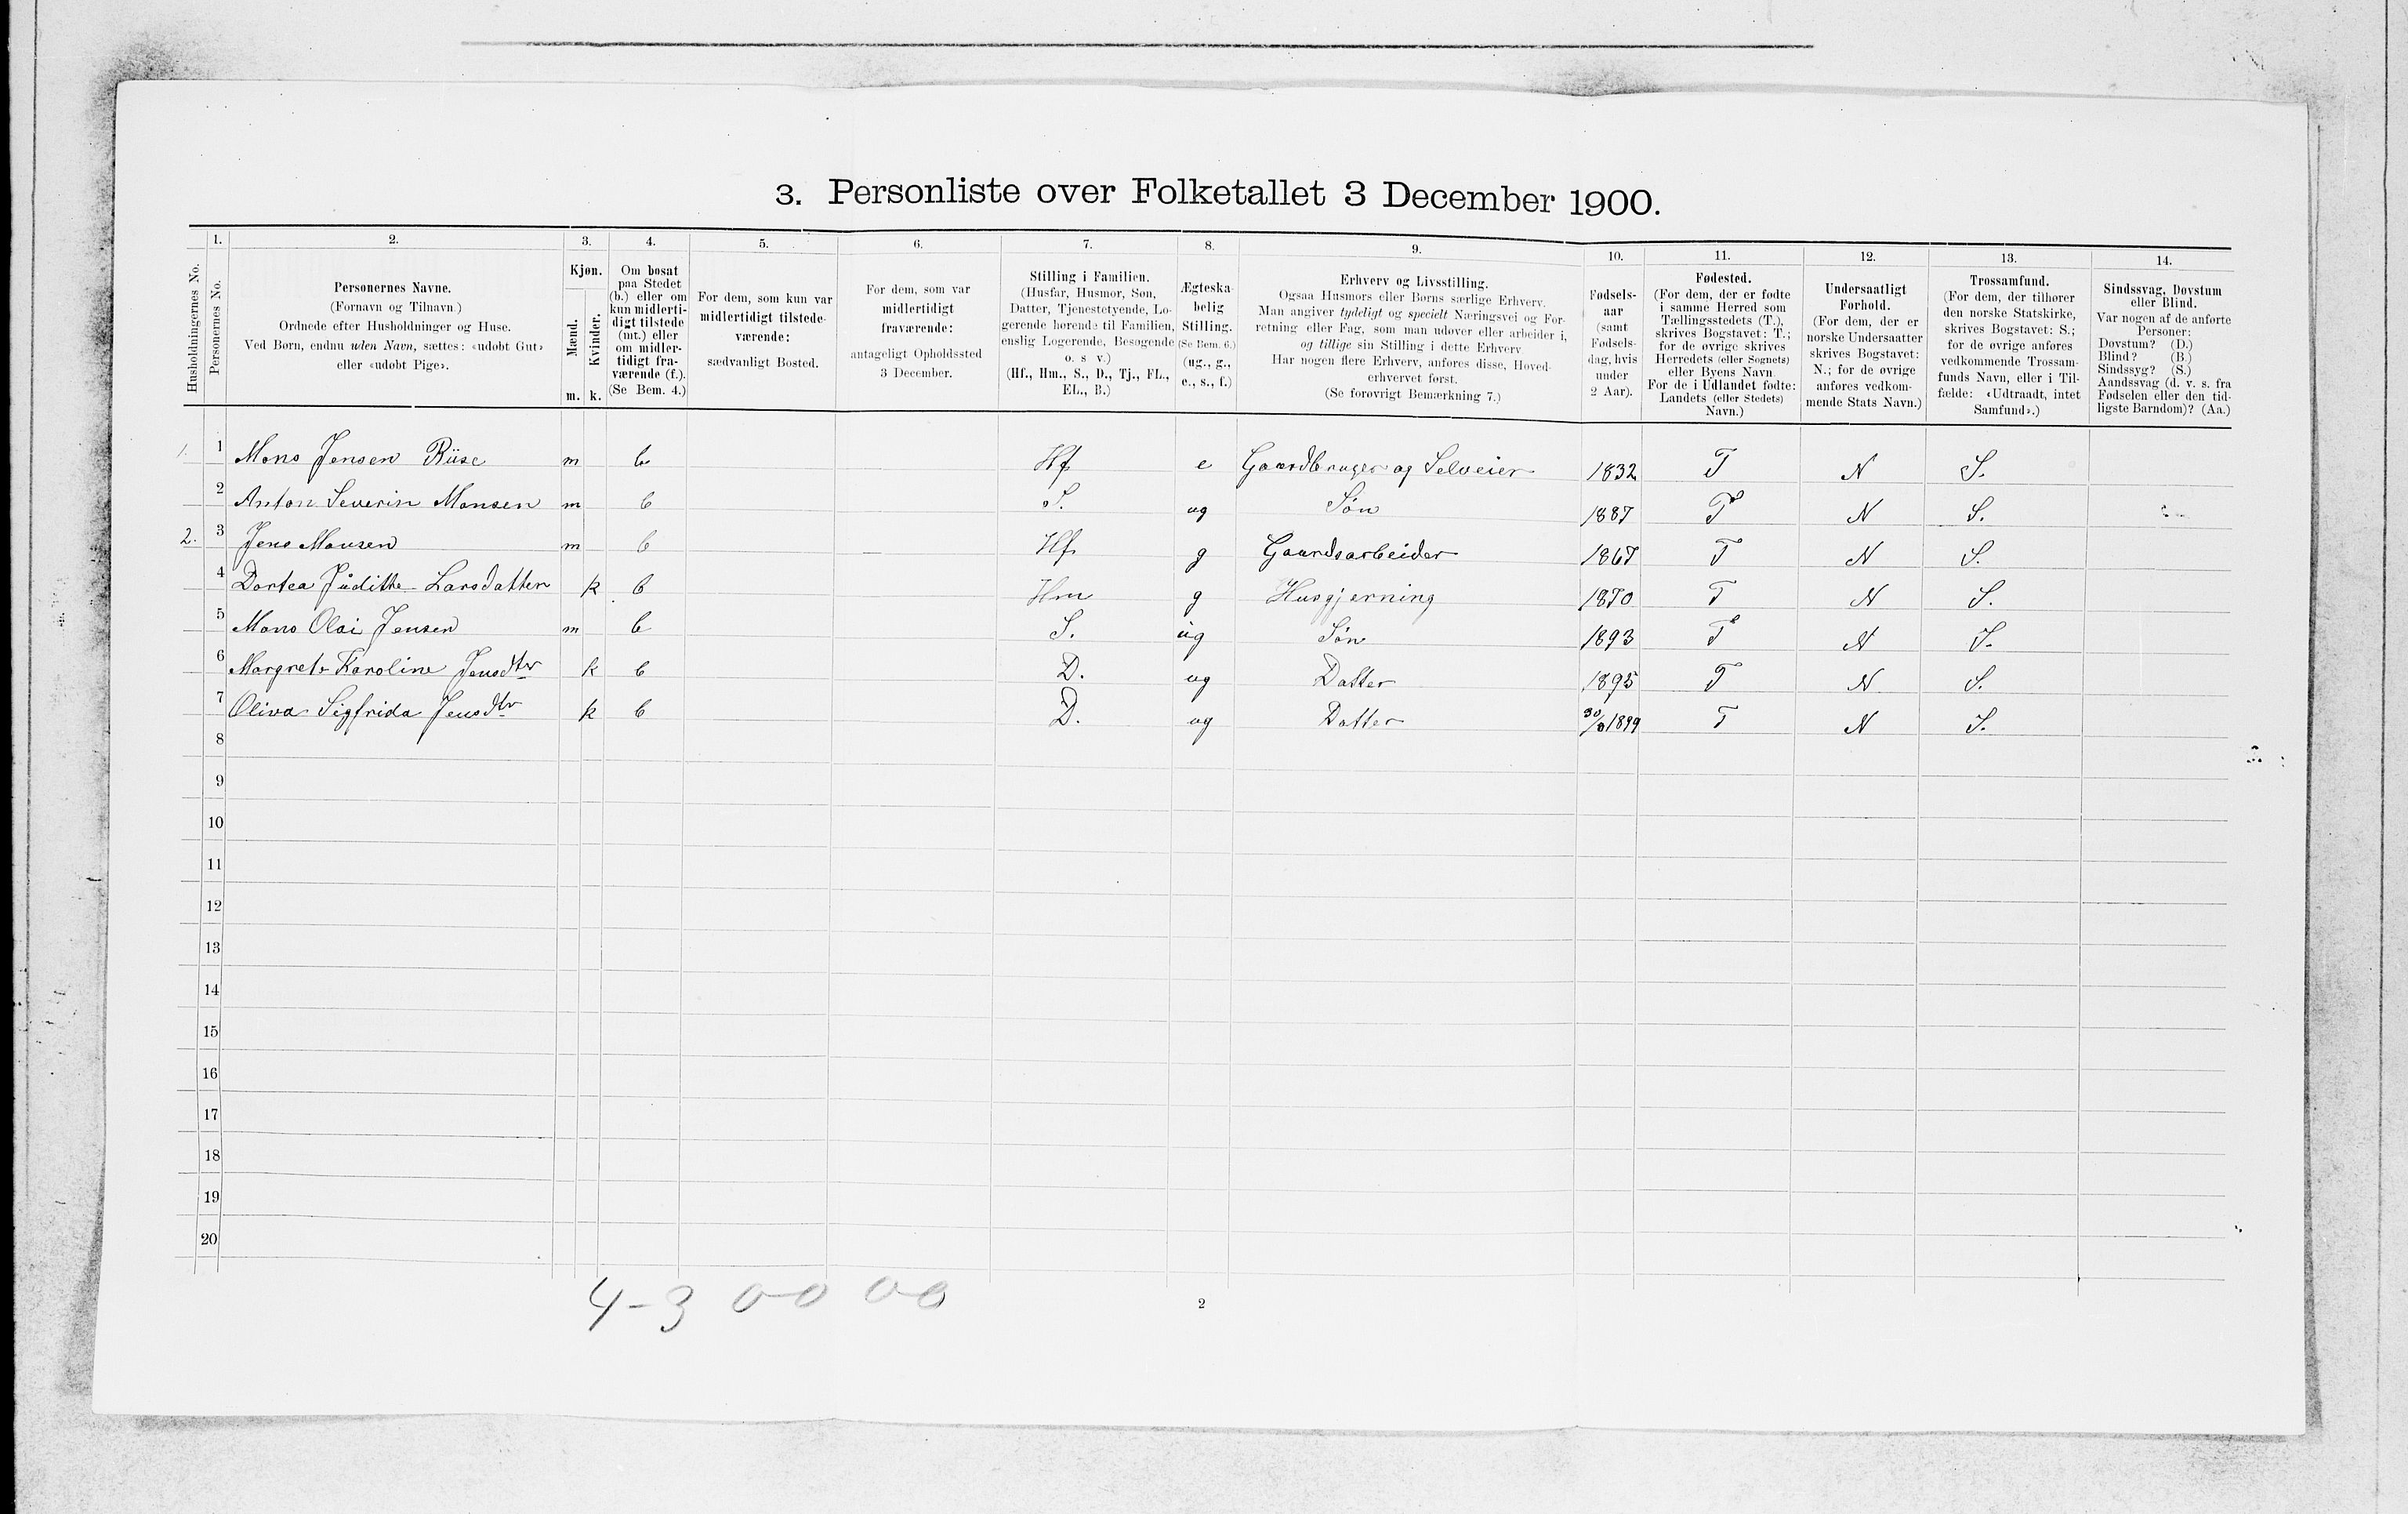 3. Personliste over Folketallet 3 December 1900.
1. 2. 3. 4. 5. 6. 7. 8. 9. 10. 11. 12. 13. 14.
Husholdningernes No.
Personernes No.
Personernes Navne.
(Fornavn og Tilnavn)
Ordnede efter Husholdninger og Huse.
Ved Børn, endnu uden Navn, sættes: «udøbt Gut»
eller «udøbt Pige».
Kjøn.
Mænd.
Kvinder.
m. k.
Om bosat
paa Stedet
(b.) eller om
kun midlerti-
digt tilstede
(mt.) eller
om midler-
tidigt fra-
værende (f.).
(Se Bem. 4.)
For dem, som kun var
midlertidigt tilstede-
værende:
sædvanligt Bosted.
For dem, som var
midlertidigt
fraværende:
antageligt Opholdssted
3 December.
Stilling i Familien.
(Husfar, Husmor, Søn,
Datter, Tjenestetyende, Lo-
gerende hørende til Familien,
enslig Logerende, Besøgende
o. s v.)
(Hf., Hm., S., D., Tj., FL.,
EL., B.)
Ægteska-
belig
Stilling.
(Se Bem. 6.)
(ug., g.,
e., s., f.)
Erhverv og Livsstilling.
Ogsaa Husmors eller Børns særlige Erhverv.
Man angiver tydeligt og specielt Næringsvei og For-
retning eller Fag, som man udøver eller arbeider i,
og tillige sin Stilling i dette Erhverv
Har nogen flere Erhverv, anføres disse, Hoved-
erhvervet først.
(Se forøvrigt Bemærkning 7.)
Fødsels-
aar
(samt
Fødsels-
dag, hvis
under
2 Aar).
Fødested.
(For dem, der er fødte
i samme Herred som
Tællingsstedets (T.),
skrives Bogstavet: T.;
for de øvrige skrives
Herredets (eller Sognets)
eller Byens Navn.
For de i Udlandet fødte:
Landets (eller Stedets)
Navn.)
Undersaatligt
Forhold.
(For dem, der er
norske Undersaatter
skrives Bogstavet:
N.; for de øvrige
anføres vedkom-
mende Stats Navn.)
Trossamfund.
(For dem, der tilhører
den norske Statskirke,
skrives Bogstavet: S.;
for de øvrige anføres
vedkommende Trossam-
funds Navn, eller i Til-
fælde: «Udtraadt, intet
Samfund».)
Sindssvag, Døvstum
eller Blind.
Var nogen af de anførte
Personer:
Døvstum? (D.)
Blind? (B.)
Sindssyg? (S.)
Aandssvag (d. v. s. fra
Fødselen eller den tid-
ligste Barndom)? (Aa.)
1. 1 Mons Jensen Riise m b Hf e Gaardbruger og Selveier 1832 T N S.
2 Anton Severin Monsen m b S. ug Søn 1887 T N S.
2. 3 Jens Monsen m b Hf g Gaardsarbeider 1867 T N S.
4 Dortea Judithe Larsdatter k b Hm g Husgjerning 1870 T N S.
5 Mons Olai Jensen m b S. ug Søn 1893 T N S.
6 Margrete Karoline Jensdtr k b D. ug Datter 1895 T N S.
7 Oliva Sigfrida Jensdtr k b D. ug Datter 1899 T N S.
8
9
10
11
12
13
14
15
16
17
18
19
20
4-3 0-0 0-0
2